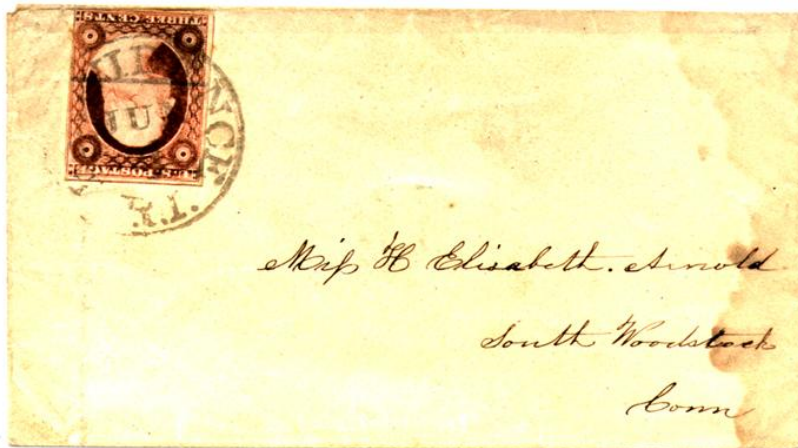 THREE CENTS
JUN
U.S. POSTAGE
Miss H Elisabeth. Arnold
South Woodstock
Conn